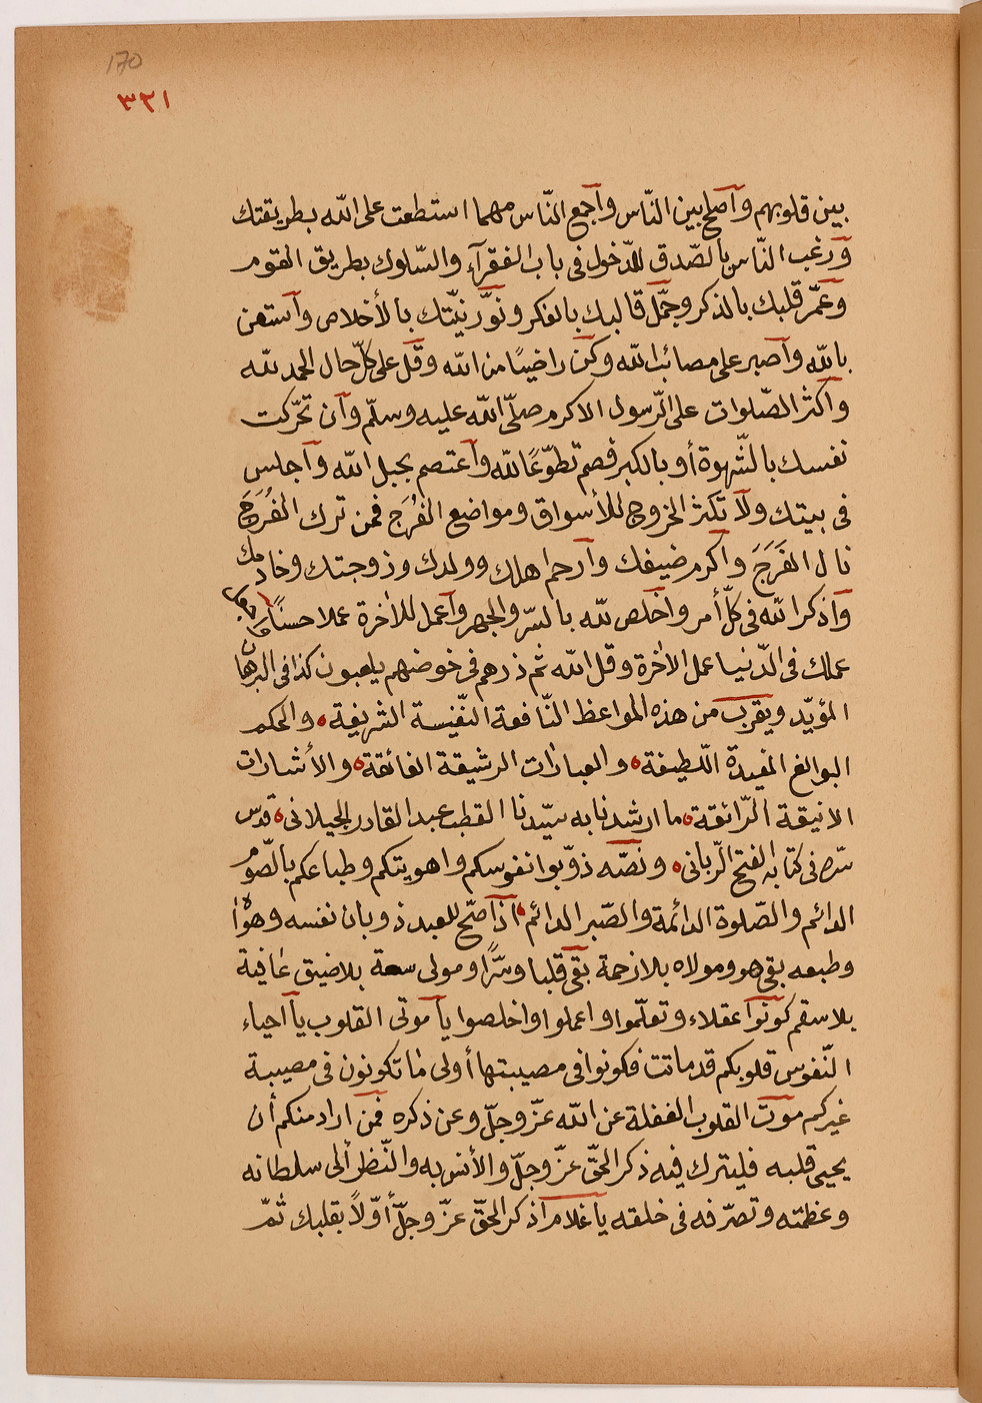 170
٣٢١
بين قلوبهم وآصلح بين النّاس وآجمع النّاس مهما استطعت على اللّه بطريقتك
ورغب النّاس بالصّدق للدّخول فى باب الفقرآء والسّلوك بطريق القوم
وعمّر قلبك بالذكر وجمّل قالبك بالفكر ونوّر نيّتك بالأخلاص وآستعن
باللّه وآصبر على مصائب اللّه وكن راضيًا من اللّه وقل على كلّ حال الحمد للّه
واكثر الصّلوات على الرّسول الاكرم صلّى اللّه عليه وسلّم وآن تحرّكت
نفسك بالشّهوة أو بالكبر فصم تطوّعًا للّه وآعتصم بحبل اللّه وآجلس
فى بيتك ولا تكثر الخروج للأسواق ومواضع الفُرَج فمن ترك الفُرَجَ
نال الفَرَجَ وآكرم ضيفك وآرحم اهلك وولدك وزوجتك وخادمك
وآذكر اللّه فى كلّ أمر واخلص للّه بالسّر والجهر وآعمل للاٰخرة عملا حسنًا
عملك فى الدّنيا عمل الاٰخرة وقل اللّه ثم ذرهم فى خوضهم يلعبون كذا فى البرهان
المؤيّد ويقرب من هذه المواعظ النّافعة النّفيسة الشريفة ه والحكم
البوالغ المفيدة اللّطيفة ه والعبارات الرشيقة الفائقة ه والأشارات
الانيقة الرّائقة ه ما ارشدنا به سيّدنا القطب عبد القادر الجيلانى ه قدّس
سّره فى كتابه الفتح الرّبانى ه ونصّه ذوّبوا نفوسكم واهويتكم وطباعكم بالصّوم
الدائم والصّلوة الدائمة والصّبر الدائم ه آذا صحّ للعبد ذوبان نفسه وهواه
وطبعه بقى هو ومولاه بلا زحمة بقى قلبا وسّرًا ومولى سعة بلا ضيق عافية
بلا سقم كونوا عقلاء وتعلّموا واعملوا واخلصوا يا موتى القلوب يا احياء
النّفوس قلوبكم قد ماتت فكونوا فى مصيبتها أولى ما تكونون فى مصيبة
غيركم موت القلوب الغفلة عن اللّه عزّ وجلّ وعن ذكره فمن اراد منكم أن
يحيى قلبه فليترك فيه ذكر الحقّ عزّ وجلّ والأنس به والنّظر ألى سلطانه
وعظمته وتصرّفه فى خلقه يا غلام آذكر الحقّ عزّ وجلّ أوّلاً بقلبك ثمّ